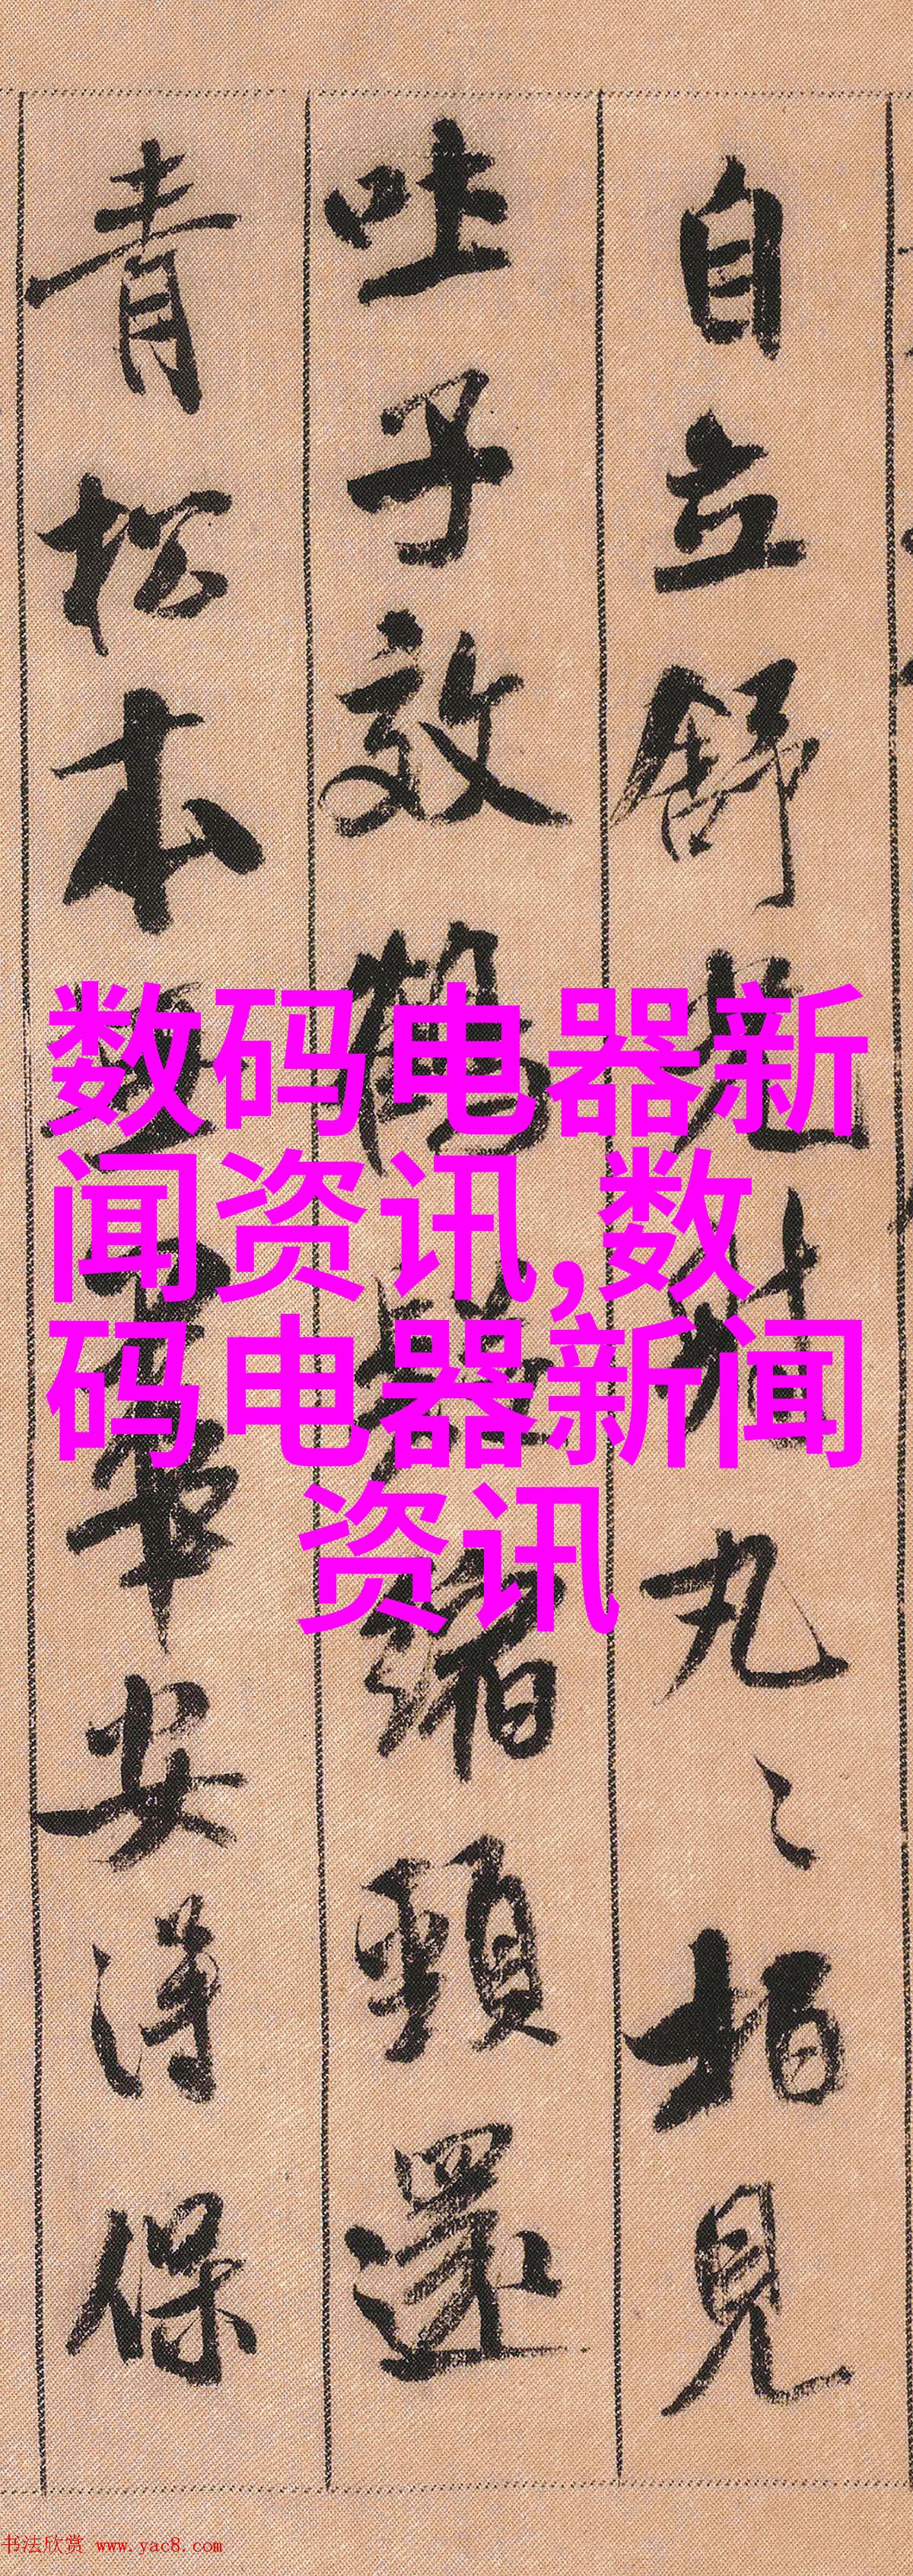 自立舒光射丸〻柏見
吐子效鶴疑縮頸還
青松本無華安得保
数码电器新
闻资讯,数
码电器新闻
资讯
书法欣赏 www.yac8.com